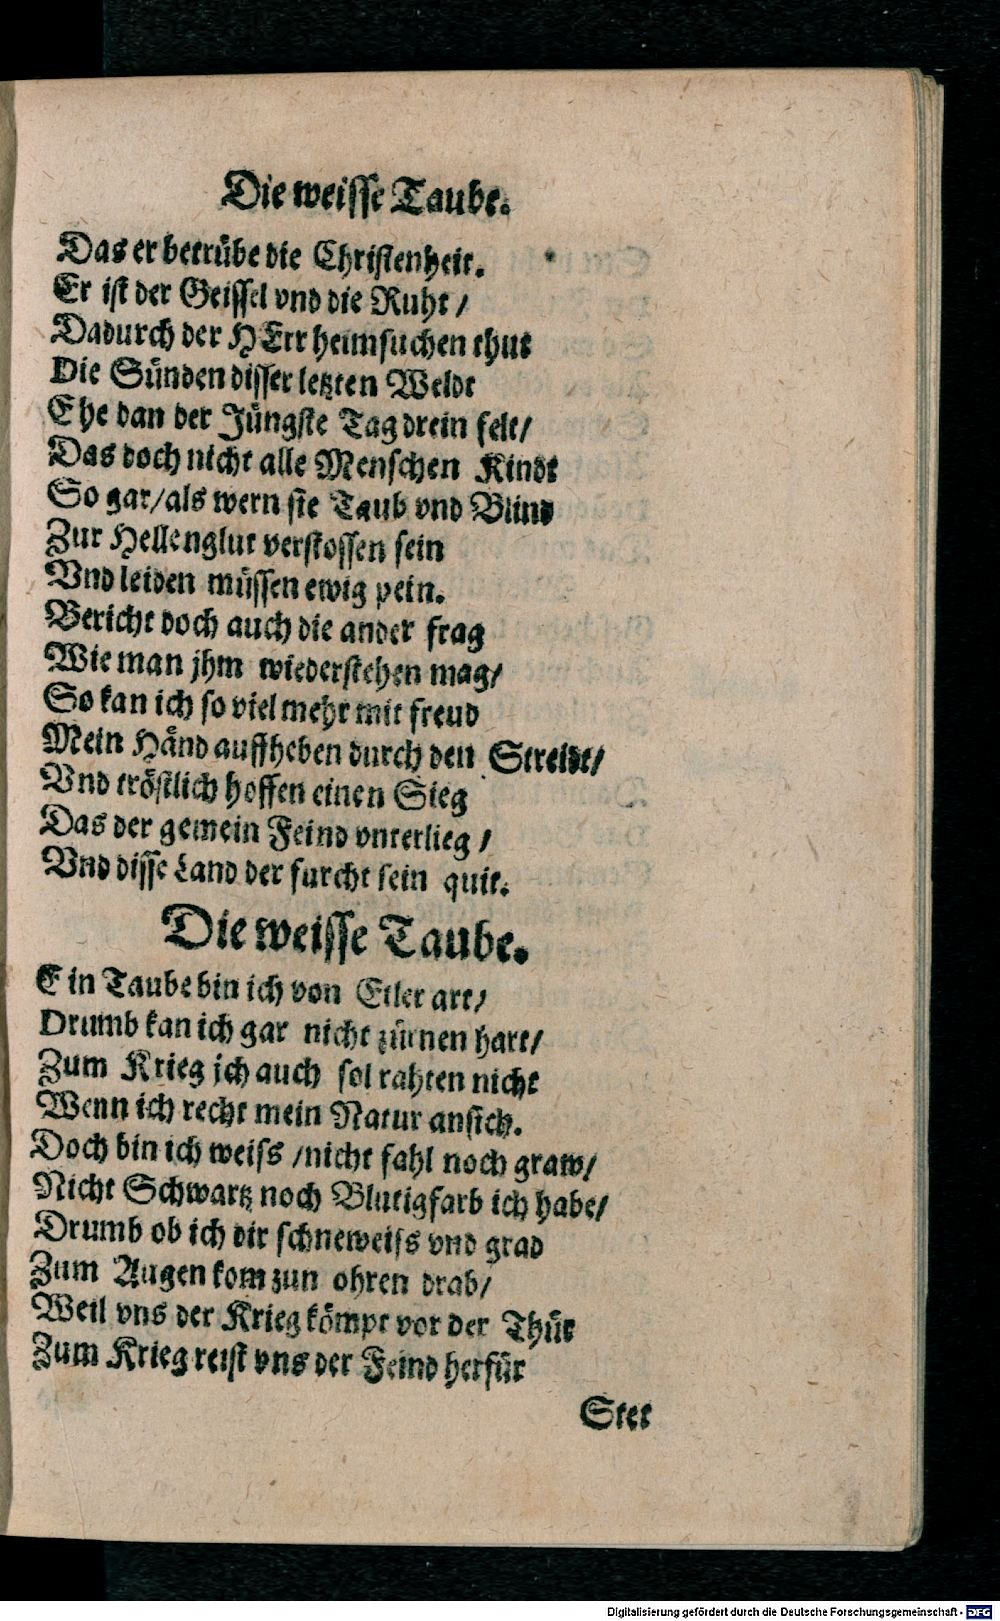 Die weisse Taube.
Das er betrübe die Christenheit.
Er ist der Geissel vnd die Ruht /
Dadurch der HErr heimsuchen thut
Die Sünden disser letzten Weldt
Ehe dan der Jüngste Tag drein felt/
Das doch nicht alle Menschen Kindt
So gar/als wern sie Taub vnd Blind
Zur Hellenglut verstossen sein
Vnd leiden müssen ewig pein.
Bericht doch auch die ander frag
Wie man jhm wiederstehen mag/
So kan ich so viel mehr mit freud
Mein Händ auffheben durch den Streidt/
Vnd tröstlich hoffen einen Sieg
Das der gemein Feind vnterlieg /
Vnd disse Land der furcht sein quit.
Die weisse Taube.
Ein Taube bin ich von Etler art/
Drumb kan ich gar nicht zürnen hart/
Zum Krieg jch auch sol rahten nicht
Wenn ich recht mein Natur ansich.
Doch bin ich weiss /nicht fahl noch graw/
Nicht Schwartz noch Blutigfarb ich habe/
Drumb ob ich dir schneweiss vnd grad
Zum Augen kom zun ohren drab/
Weil vns der Krieg kömpt vor der Thür
Zum Krieg reist vns der Feind herfür
Stet
Digitalisierung gefördert durch die Deutsche Forschungsgemeinschaft - DFG